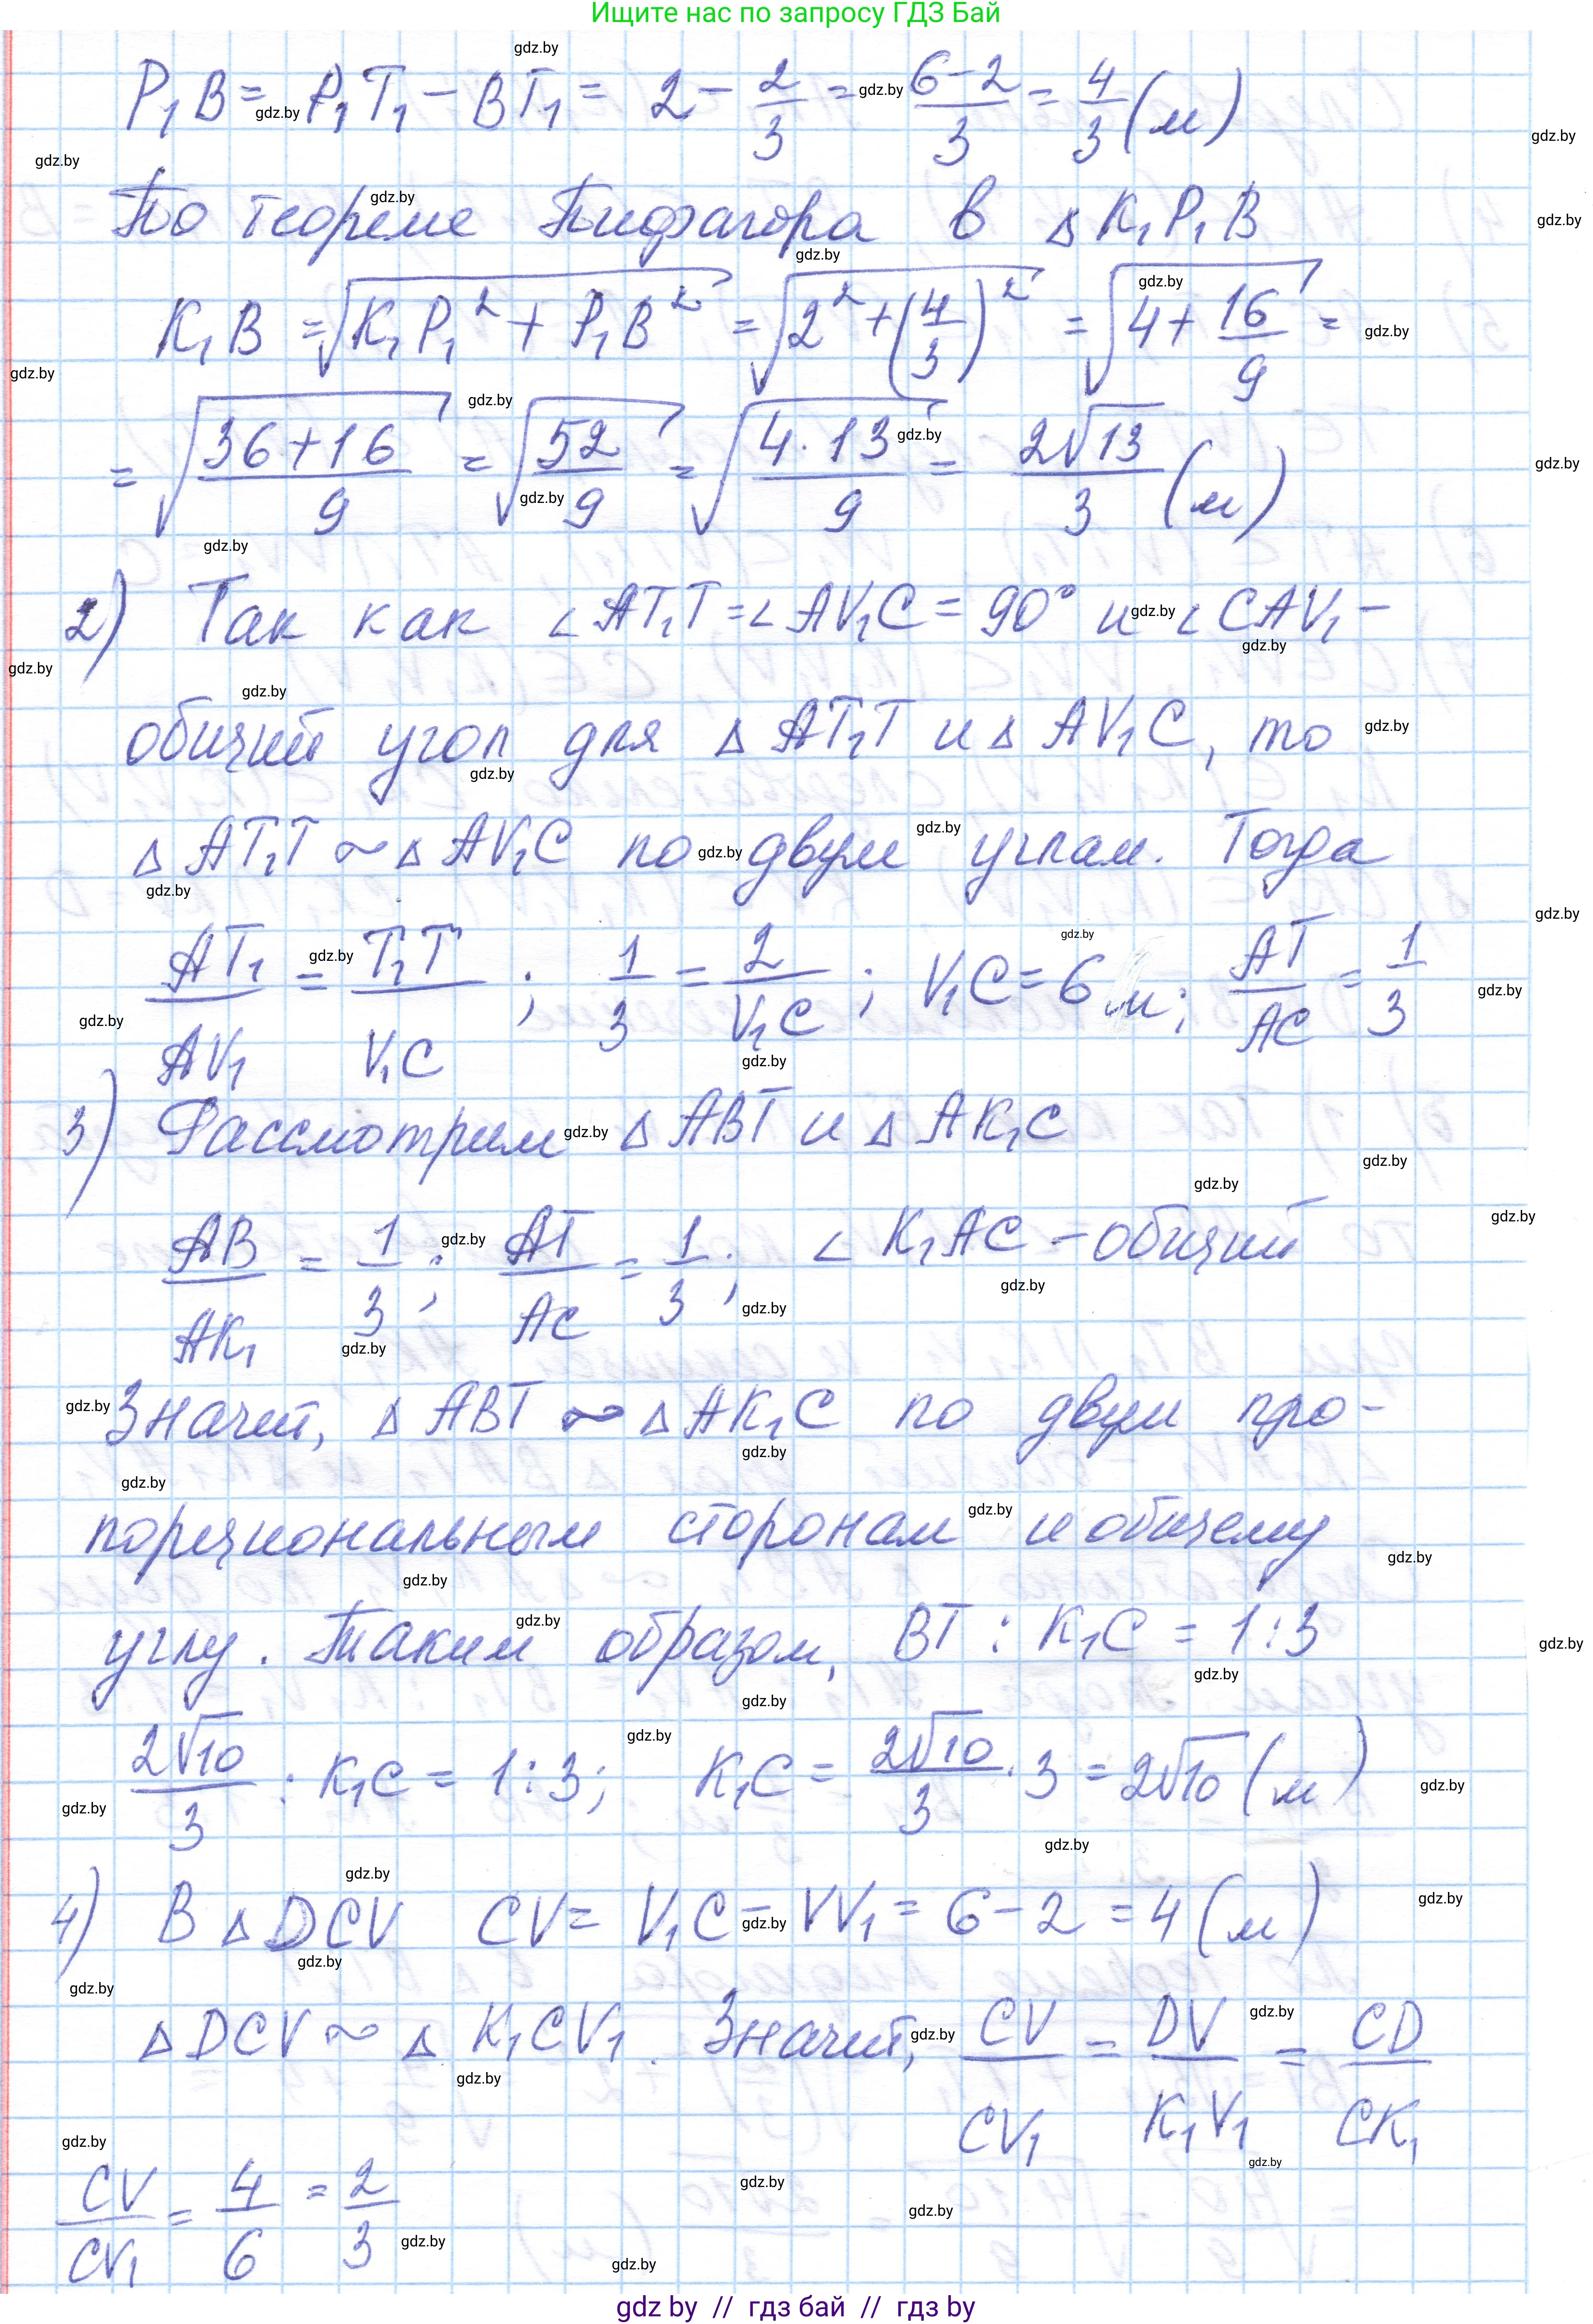 Ищите нас по запросу ГДЗ Бай
P₁B = P₁T₁ − BT₁ = 2 − 2/3 = (6−2)/3 = 4/3 (м)
По теореме Пифагора в △ K₁P₁B
K₁B = √(K₁P₁² + P₁B²) = √(2² + (4/3)²) = √(4 + 16/9) =
= √((36+16)/9) = √(52/9) = √((4·13)/9) = 2√13/3 (м)
2) Так как ∠AT₁T = ∠AV₁C = 90° и ∠CAV₁ –
общий угол для △ AT₁T и △ AV₁C, то
△ AT₁T ~ △ AV₁C по двум углам. Тогда
AT₁/AV₁ = T₁T/V₁C ; 1/3 = 2/V₁C ; V₁C = 6 м; AT/AC = 1/3
3) Рассмотрим △ ABT и △ AK₁C
AB/AK₁ = 1/3 ; AT/AC = 1/3 ; ∠ K₁AC – общий
Значит, △ ABT ~ △ AK₁C по двум про-
порциональным сторонам и общему
углу. Таким образом, BT : K₁C = 1:3
2√10/3 : K₁C = 1:3; K₁C = 2√10/3 · 3 = 2√10 (м)
4) В △ DCV CV = V₁C − VV₁ = 6 − 2 = 4 (м)
△ DCV ~ △ K₁CV₁. Значит, CV/CV₁ = DV/K₁V₁ = CD/CK₁
CV/CV₁ = 4/6 = 2/3
gdz by // гдз бай // гдз by